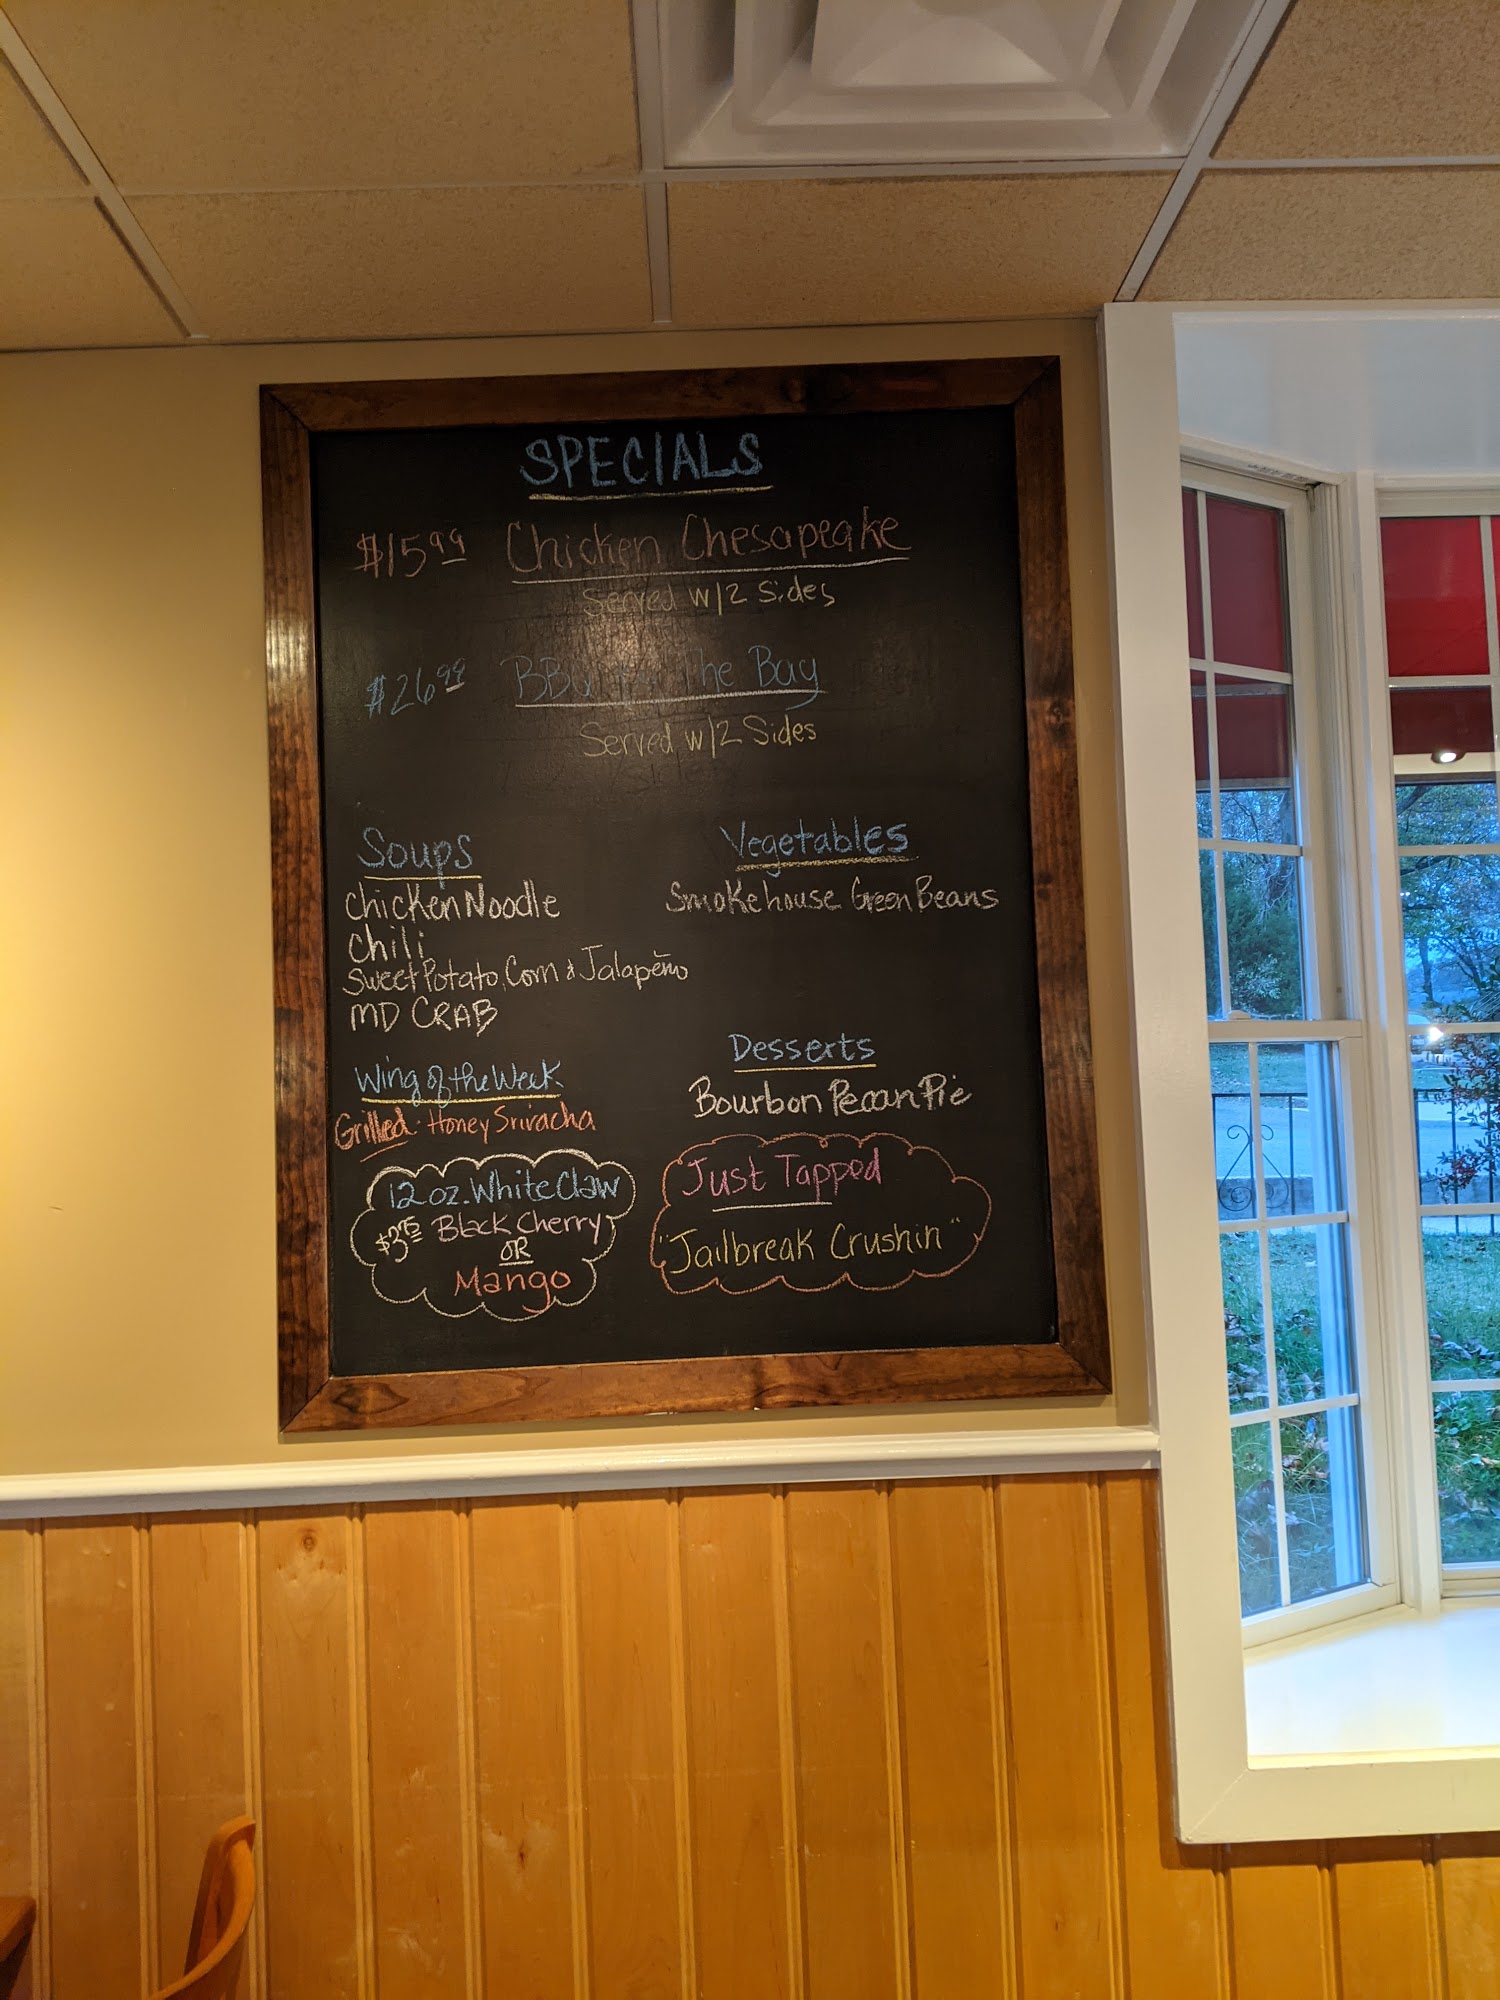 SPECIALS
$15.99 Chicken Chesapeake
Served w/2 Sides
$26.99 BBQ The Bay
Served w/2 Sides
Soups
Chicken Noodle
Chili
Sweet Potato, Corn & Jalapeño
MD CRAB
Vegetables
Smokehouse Green Beans
Wing of the Week
Grilled: Honey Sriracha
Desserts
Bourbon Pecan Pie
12 oz. White Claw
$3.75 Black Cherry
OR
Mango
Just Tapped
"Jailbreak Crushin"